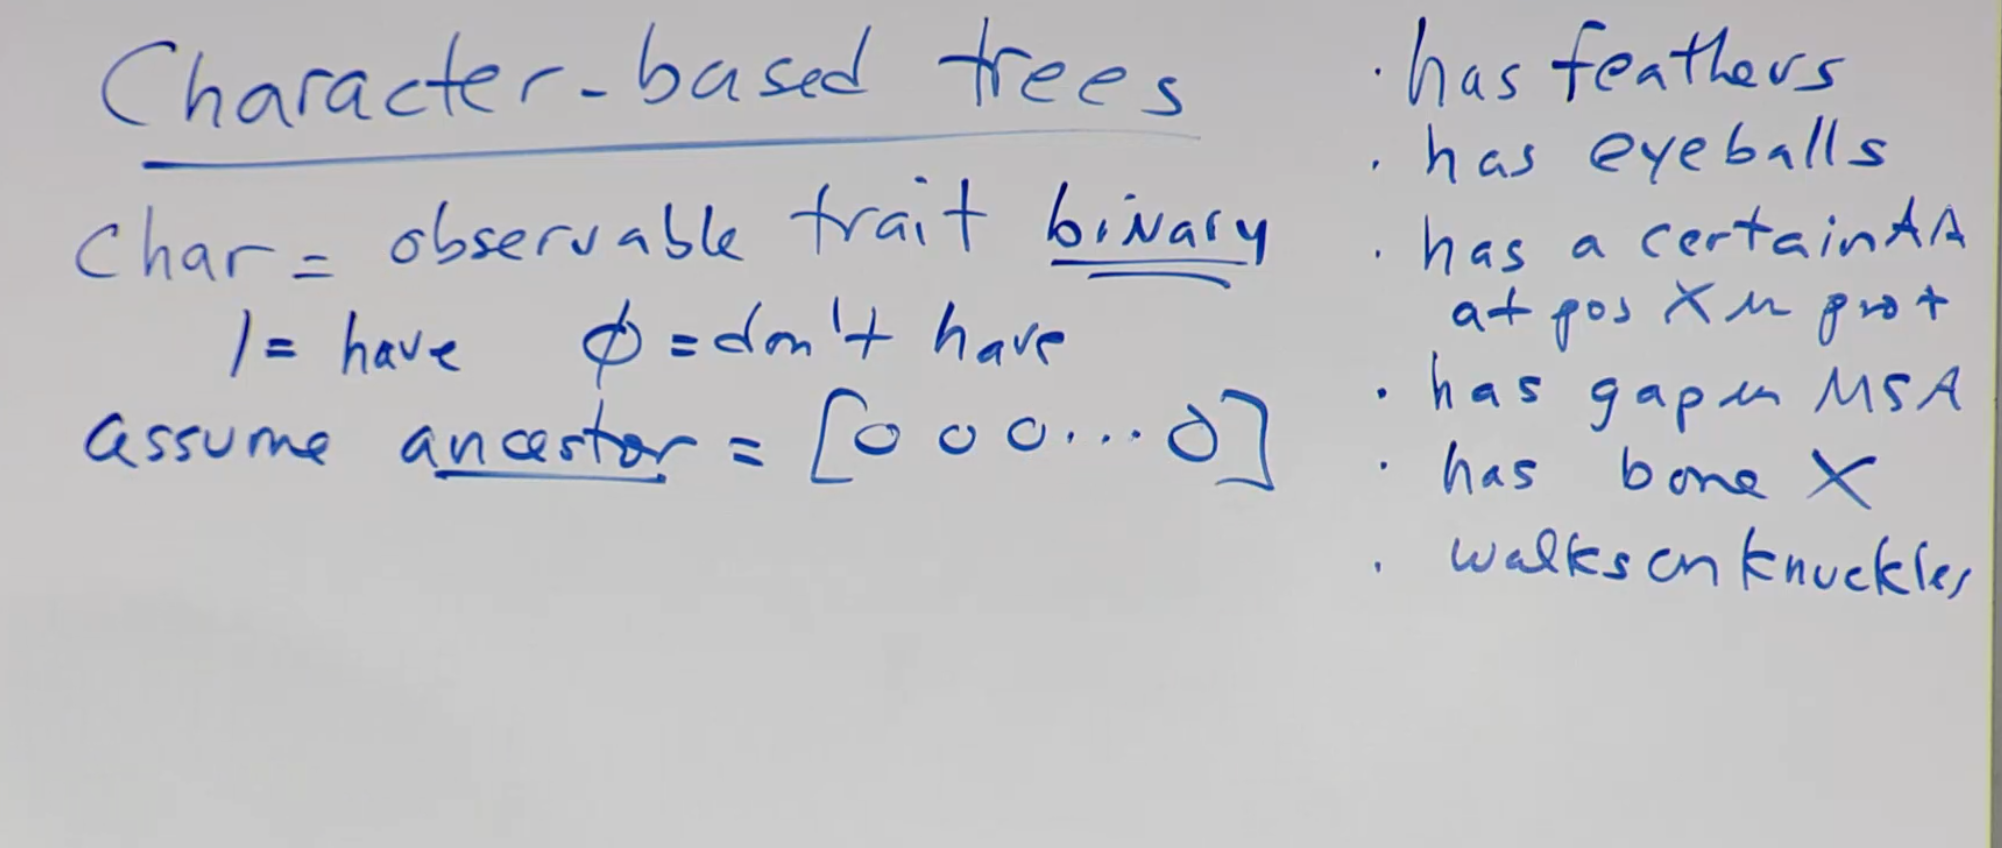 Character-based trees
char = observable trait binary
1 = have ∅ = don't have
assume ancestor = [0 0 0 ... 0]
· has feathers
· has eyeballs
· has a certain AA
at pos X in prot
· has gap in MSA
· has bone X
· walks on knuckles